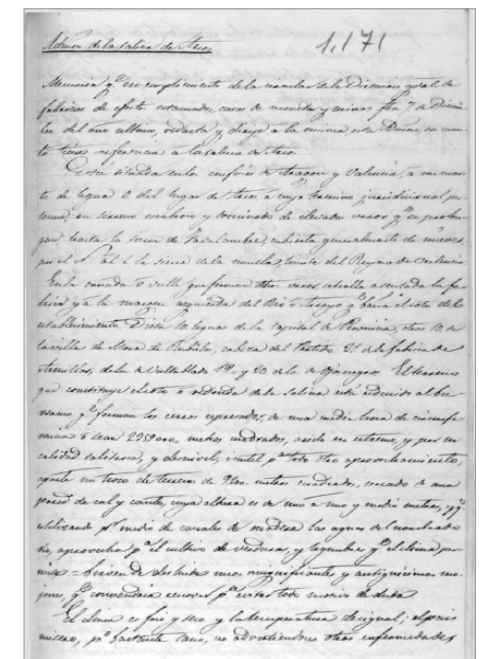 Admon de la Salina de Arcos 1,171
Memoria qe en cumplimiento de lo mandado la Direccion gral de
fabricas de efectos estancados, casas de moneda y minas fha 7 de Diciem
bre del año ultimo, redacta y dirige a la misma esta en cuan
to tiene referencia à la salina de Arcos.
Está situada en los confines de Aragon y Valencia, a un cuar
to de legua O del lugar de Arcos, a cuyo termino jurisdiccional per
tenece, en terreno escabroso y dominado de elevados cerros qe se prolon
gan hasta la sierra de Javalambre, cubierta generalmente de nieves,
por el N. y al la sierra de la limite del Reyno de Valencia
En la cañada ó valle que forman dhos cerros se halla asentada la fa
brica y a la margen izquierda del Rio ó Arroyo qe baña el coto del
establecimiento. Dista 10 leguas de la Capital de Provincia, otras 10 de
la villa de Mora de Rubielos, cabeza del Partido, de la fabrica de
Armillas, de la de Valtablado 18, y 20 de la de Ojos negros. El terreno
que constituye el coto ó redonda de la salina está reducido al
qe forman los cerros espresados, de una media hora de circunfe
rencia ó sean metros cuadrados, arido en estremo, y por su
calidad salitrosa, y desnivel, inutil pa todo otro aprovechamiento,
aparte un trozo de terreno de metros cuadrados, cercado de una
pared de cal y canto, cuya altura es de uno a uno y medio metros, y qe
utilizando pr medio de canales de madera las aguas del mencionado
rio, aprovecha pa el cultivo de verduras, y legumbres qe el clima per
mite = Sirven de deslinde unos insignificantes y antiquisimos mo
jones, qe convendria renovar pa evitar todo motivo de duda.
El clima es frio y seco y la temperatura desigual;
pero bastante sano, no advirtiendose otras enfermedades